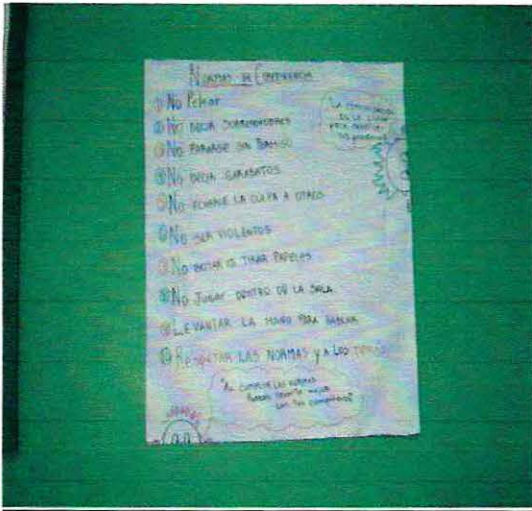 NORMAS DE CONVIVENCIA
① No Pelear
② No DECIR SOBRENOMBRES
③ No PARARSE SIN PERMISO
④ No DECIR GARABATOS
⑤ No ECHARLE LA CULPA A OTROS
⑥ No SER VIOLENTOS
⑦ No BOTAR NI TIRAR PAPELES
⑧ No JUGAR DENTRO DE LA SALA
⑨ LEVANTAR LA MANO PARA HABLAR
⑩ RESPETAR LAS NORMAS y A LOS
LA
ES LA CLAVE
PARA
"AL CUMPLIR LAS NORMAS
PUEDES
CON TUS COMPAÑEROS"